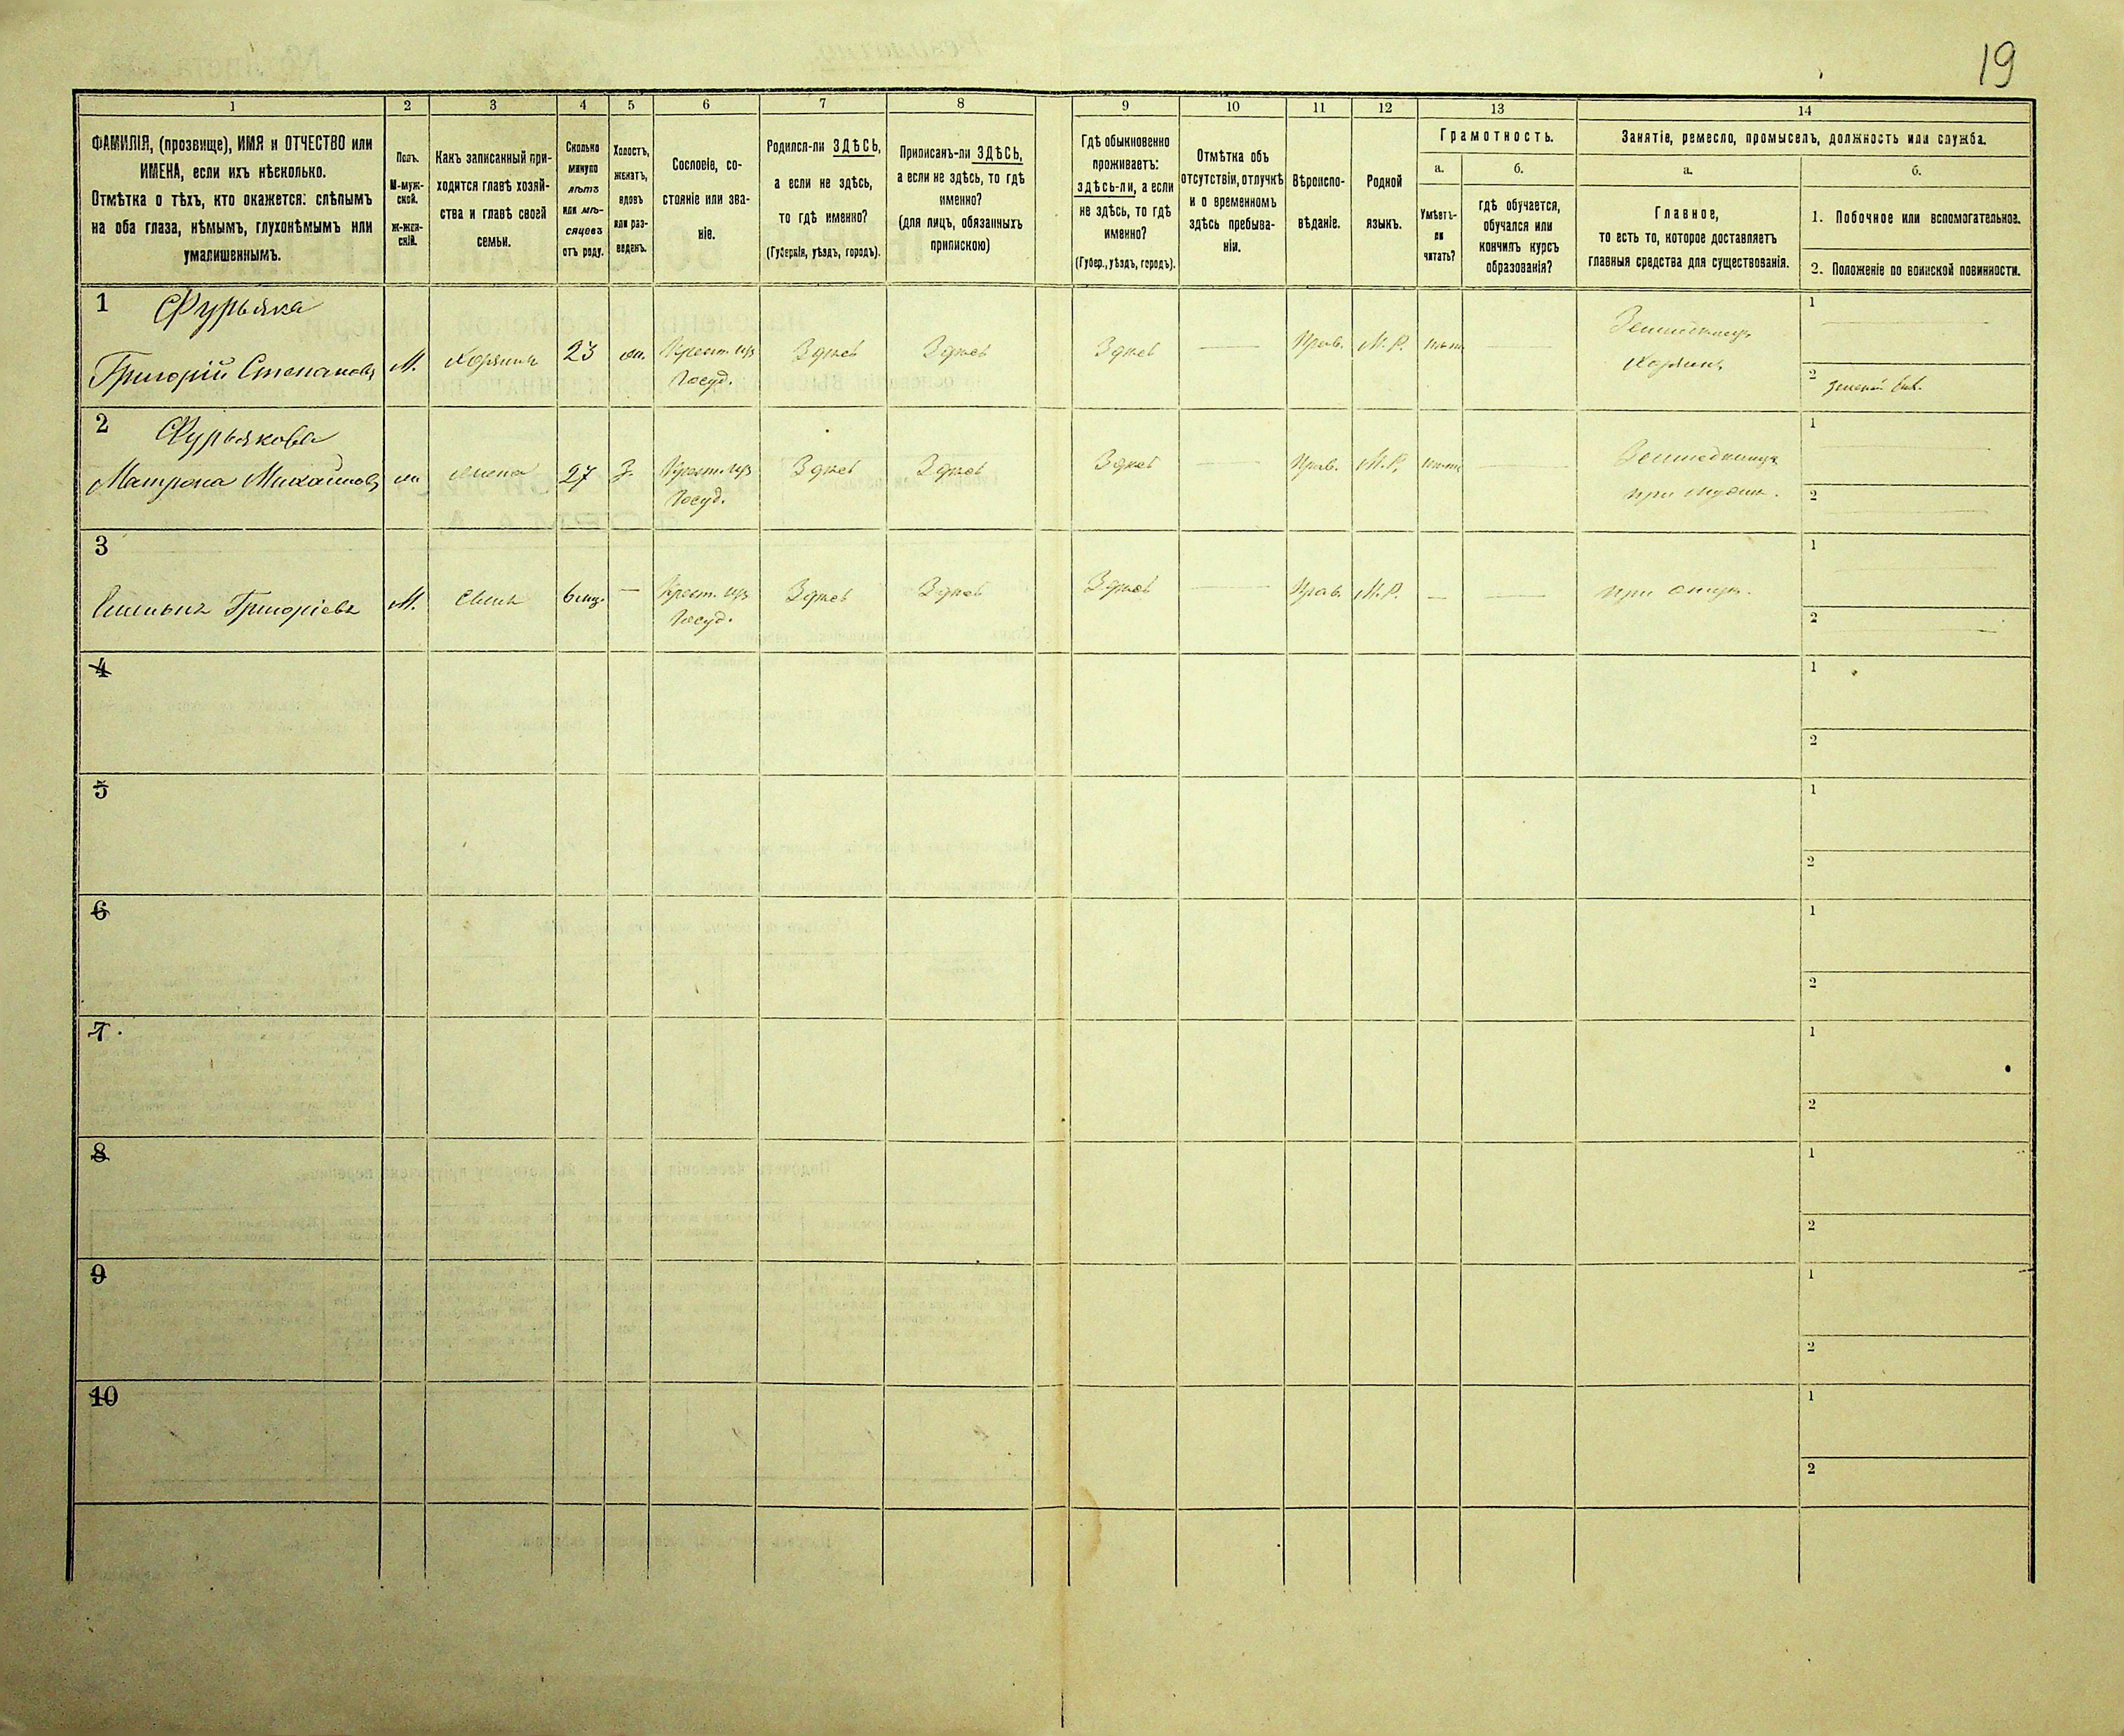 19
1 2 3 4 5 6 7 8 9 10 11 12 13 14
ФАМИЛІЯ, (прозвище), ИМЯ и ОТЧЕСТВО или
ИМЕНА, если ихъ нѣсколько.
Отмѣтка о тѣхъ, кто окажется: слѣпымъ
на оба глаза, нѣмымъ, глухонѣмымъ или
умалишеннымъ.
Полъ.
М-муж-
ской.
Ж-жен-
скій.
Какъ записанный при-
ходится главѣ хозяй-
ства и главѣ своей
семьи.
Сколько
минуло
лѣтъ
или мѣ-
сяцевъ
отъ роду.
Холостъ,
женатъ,
вдовъ
или раз-
веденъ.
Сословіе, со-
стояніе или зва-
ніе.
Родился-ли ЗДѢСЬ,
а если не здѣсь,
то гдѣ именно?
(Губернія, уѣздъ, городъ).
Приписанъ-ли ЗДѢСЬ,
а если не здѣсь, то гдѣ
именно?
(для лицъ, обязанныхъ
припискою)
Гдѣ обыкновенно
проживаетъ:
здѣсь-ли, а если
не здѣсь, то гдѣ
именно?
(Губер., уѣздъ, городъ).
Отмѣтка объ
отсутствіи, отлучкѣ
и о временномъ
здѣсь пребыва-
ніи.
Вѣроиспо-
вѣданіе.
Родной
языкъ.
Грамотность.
а.
Умѣетъ-
ли
читать?
б.
гдѣ обучается,
обучался или
кончилъ курсъ
образованія?
Занятіе, ремесло, промыселъ, должность или служба.
а.
Главное,
то есть то, которое доставляетъ
главныя средства для существованія.
б.
1. Побочное или вспомогательное.
2. Положеніе по воинской повинности.
1 Фурьяка
Григорій Степановъ М. Хозяинъ 23 Крест. изъ Здѣсь Здѣсь Здѣсь — Прав. М.Р. нѣтъ —
Госуд.
Хозяинъ
1
2
2 Фурьякова
Матрона Михайлова жена 27 З. Крест. изъ Здѣсь Здѣсь Здѣсь — Прав. М.Р. нѣтъ —
Госуд.
при мужѣ.
1
2
3
Григоріевъ М. Сынъ 6 мѣс. — Крест. изъ Здѣсь Здѣсь Здѣсь — Прав. М.Р. — — при отцѣ.
Госуд.
1
2
4
1
2
5
1
2
6
1
2
7
1
2
8
1
2
9
1
2
10
1
2